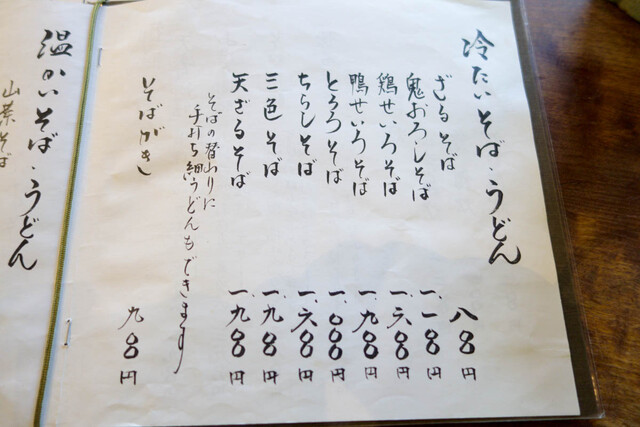 冷たいそば・うどん
ざるそば 八〇〇円
鬼おろしそば 一、一〇〇円
鶏せいろそば 一、六〇〇円
鴨せいろそば 一、九〇〇円
とろろそば 一、〇〇〇円
ちらしそば 一、六〇〇円
三色そば 一、九〇〇円
天ざるそば 一、九〇〇円
そばの替わりに
手打ち細うどんもできます
そばがき 九〇〇円
温かいそば・うどん
山菜そば